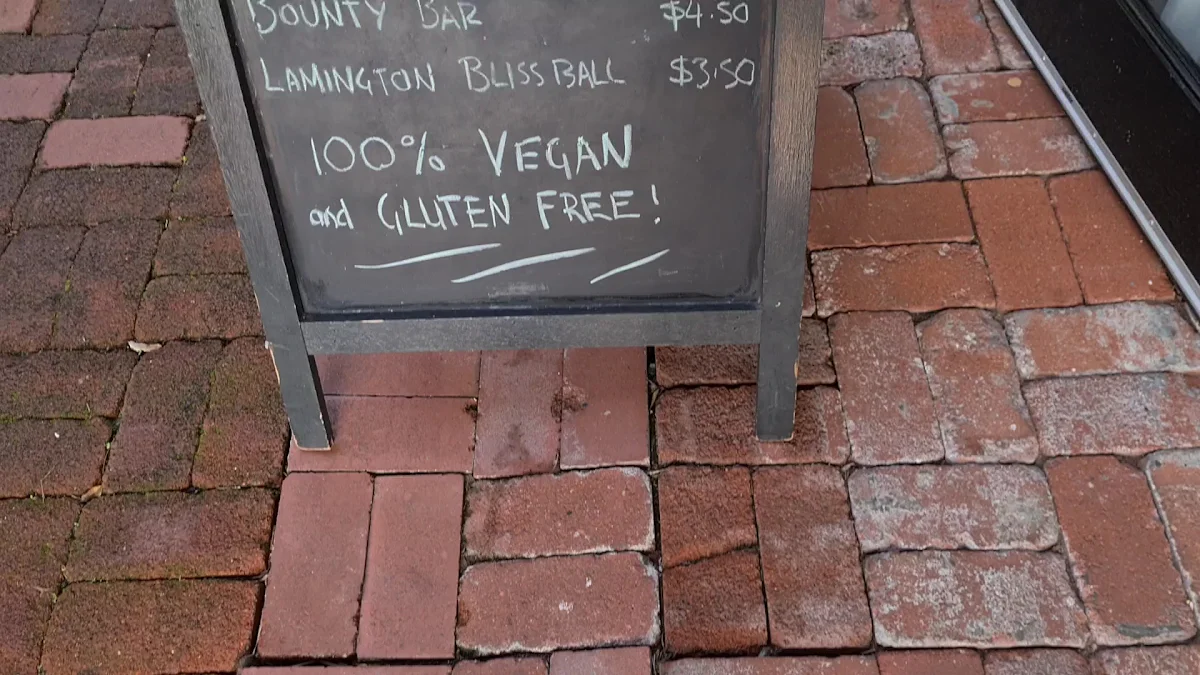 BOUNTY BAR $4.50
LAMINGTON BLISS BALL $3.50
100% VEGAN
and GLUTEN FREE!